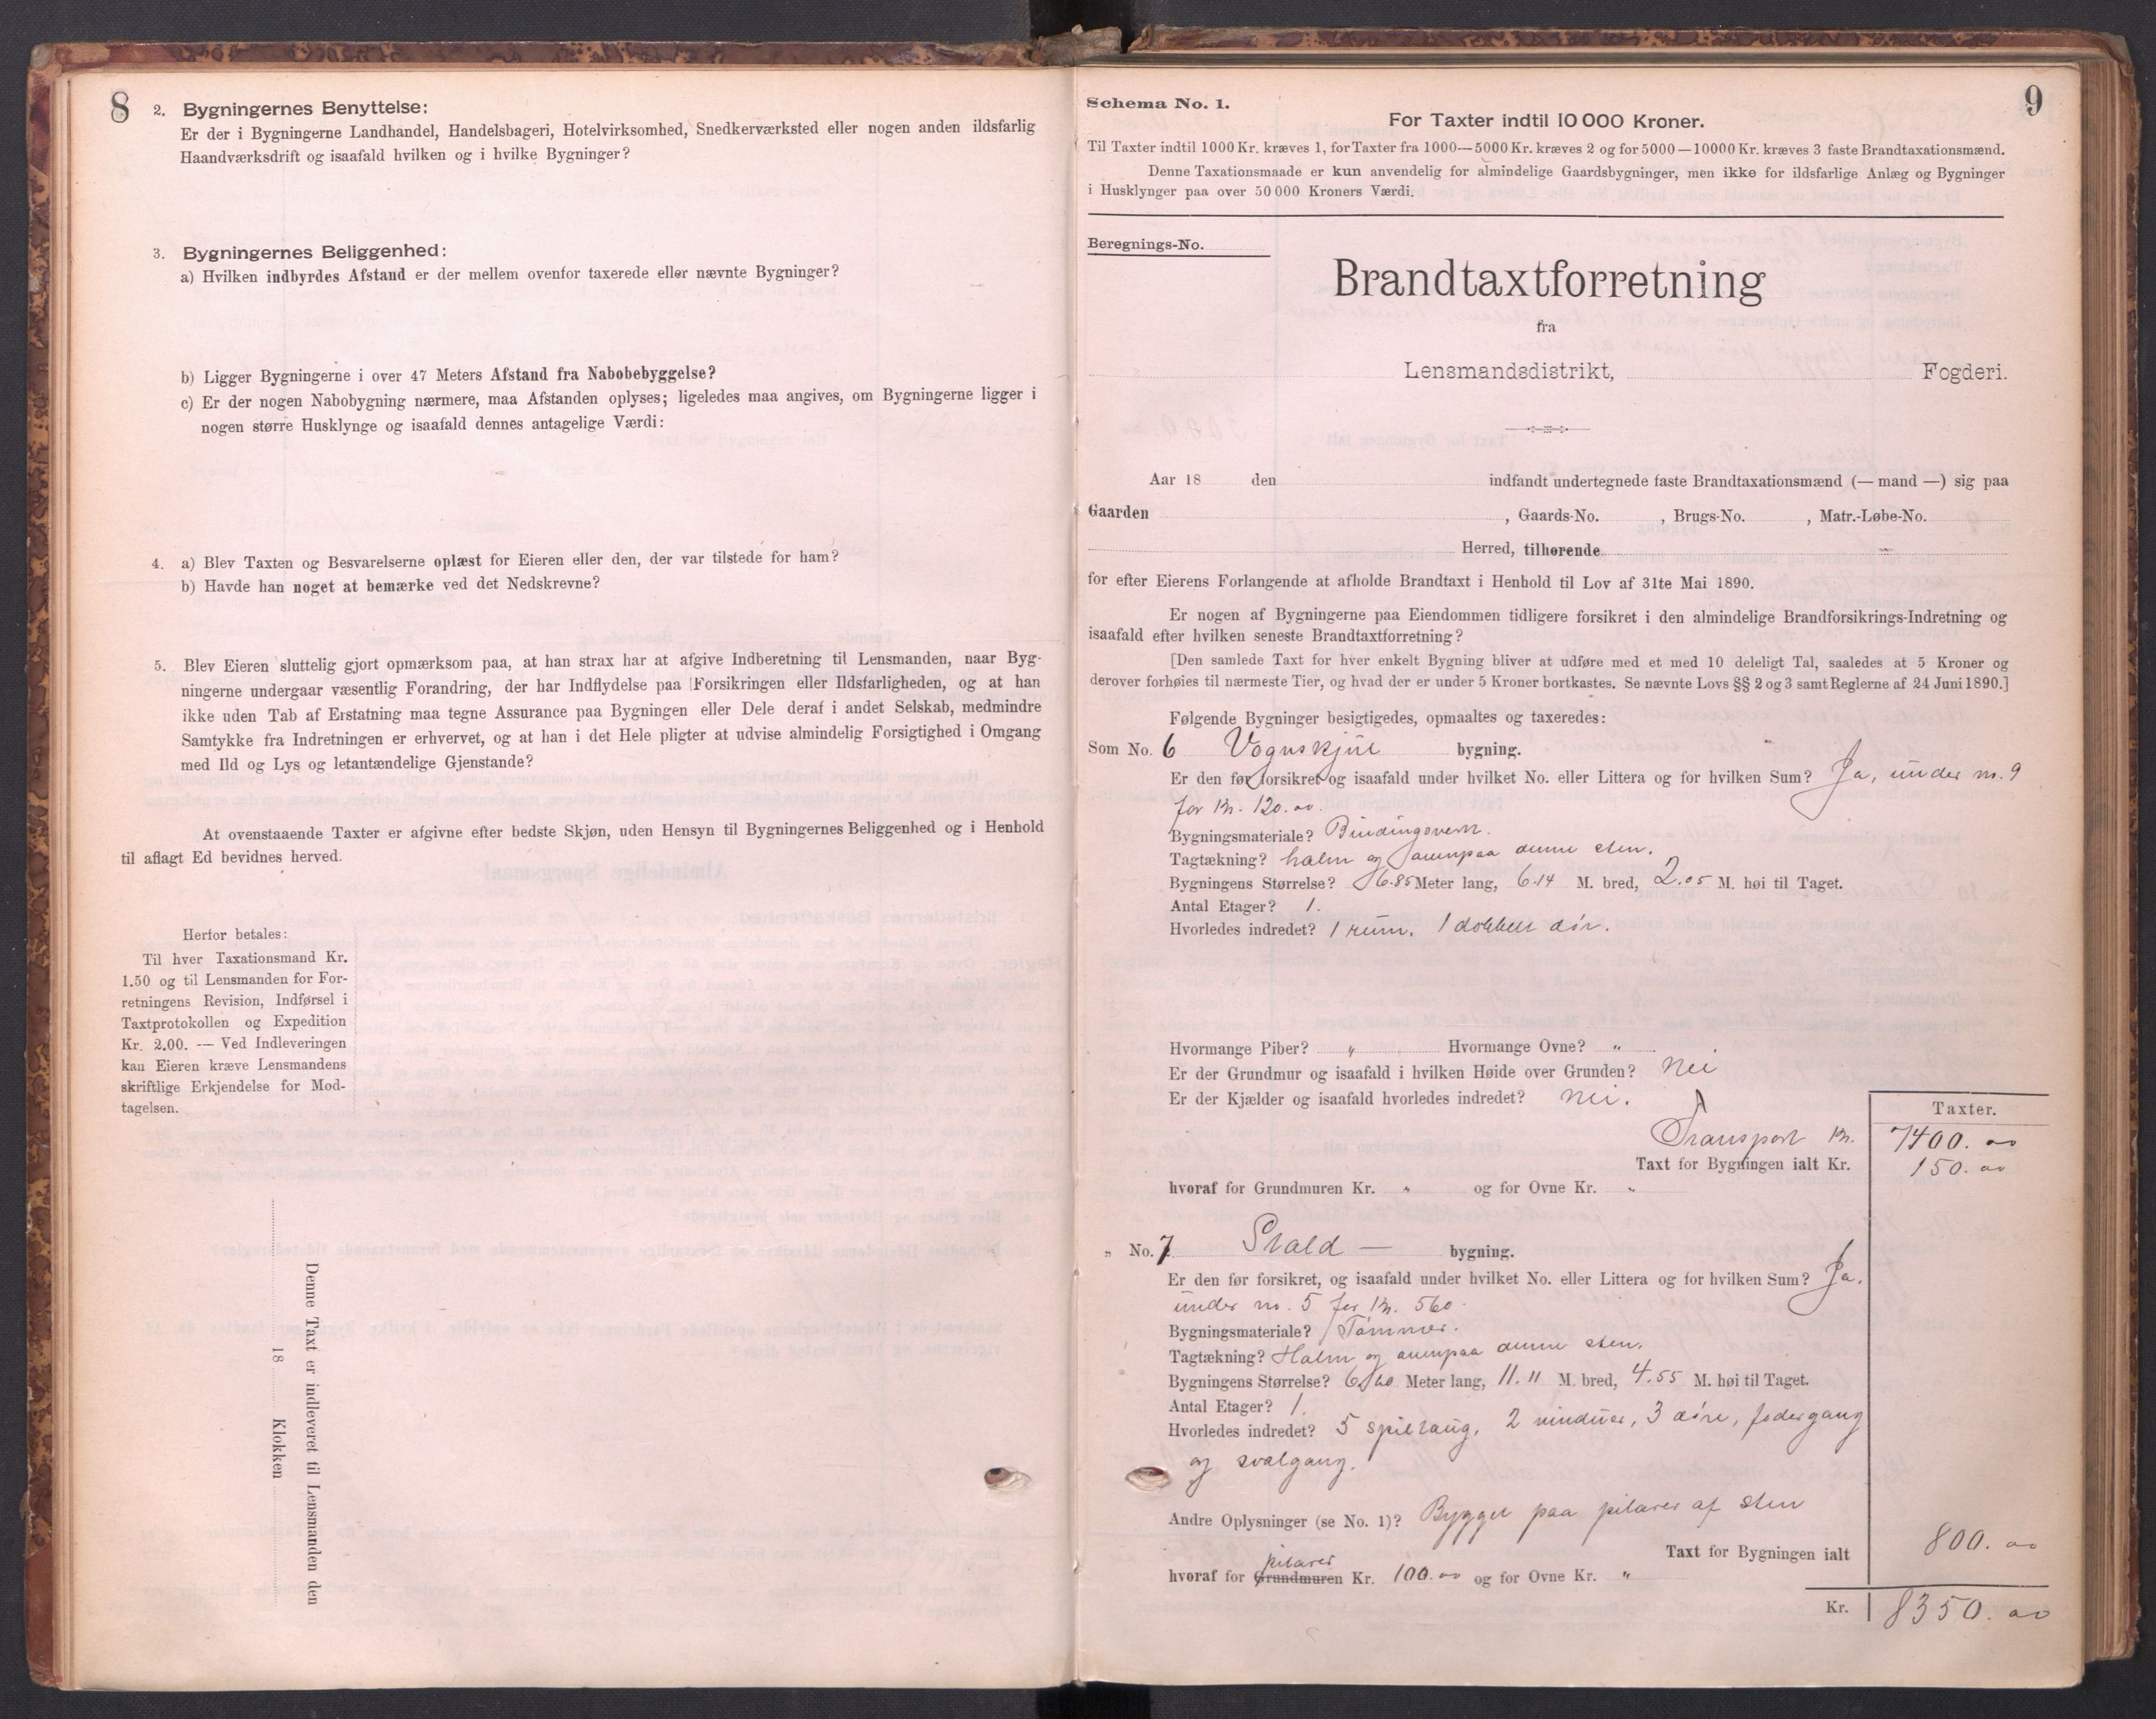 8
2. Bygningernes Benyttelse:
Er der i Bygningerne Landhandel, Handelsbageri, Hotelvirksomhed, Snedkerværksted eller nogen anden ildsfarlig
Haandværksdrift og isaafald hvilken og i hvilke Bygninger?
3. Bygningernes Beliggenhed:
a) Hvilken indbyrdes Afstand er der mellem ovenfor taxerede eller nævnte Bygninger?
b) Ligger Bygningerne i over 47 Meters Afstand fra Nabobebyggelse?
c) Er der nogen Nabobygning nærmere, maa Afstanden oplyses; ligeledes maa angives, om Bygningerne ligger i
nogen større Husklynge og isaafald dennes antagelige Værdi:
4. a) Blev Taxten og Besvarelserne oplæst for Eieren eller den, der var tilstede for ham?
b) Havde han noget at bemærke ved det Nedskrevne?
5. Blev Eieren sluttelig gjort opmærksom paa, at han strax har at afgive Indberetning til Lensmanden, naar Byg-
ningerne undergaar væsentlig Forandring, der har Indflydelse paa Forsikringen eller Ildsfarligheden, og at han
ikke uden Tab af Erstatning maa tegne Assurance paa Bygningen eller Dele deraf i andet Selskab, medmindre
Samtykke fra Indretningen er erhvervet, og at han i det Hele pligter at udvise almindelig Forsigtighed i Omgang
med Ild og Lys og letantændelige Gjenstande?
At ovenstaaende Taxter er afgivne efter bedste Skjøn, uden Hensyn til Bygningernes Beliggenhed og i Henhold
til aflagt Ed bevidnes herved.
Herfor betales:
Til hver Taxationsmand Kr.
1.50 og til Lensmanden for For-
retningens Revision, Indførsel i
Taxtprotokollen og Expedition
Kr. 2.00. — Ved Indleveringen
kan Eieren kræve Lensmandens
skriftlige Erkjendelse for Mod-
tagelsen.
Denne Taxt er indleveret til Lensmanden den
18 Klokken
9
Schema No. 1.
For Taxter indtil 10 000 Kroner.
Til Taxter indtil 1000 Kr. kræves 1, for Taxter fra 1000—5000 Kr. kræves 2 og for 5000—10000 Kr. kræves 3 faste Brandtaxationsmænd.
Denne Taxationsmaade er kun anvendelig for almindelige Gaardsbygninger, men ikke for ildsfarlige Anlæg og Bygninger
i Husklynger paa over 50 000 Kroners Værdi.
Beregnings-No.
Brandtaxtforretning
fra
Lensmandsdistrikt, Fogderi.
Aar 18 den indfandt undertegnede faste Brandtaxationsmænd (— mand —) sig paa
Gaarden , Gaards-No. , Brugs-No. , Matr.-Løbe-No.
Herred, tilhørende
for efter Eierens Forlangende at afholde Brandtaxt i Henhold til Lov af 31te Mai 1890.
Er nogen af Bygningerne paa Eiendommen tidligere forsikret i den almindelige Brandforsikrings-Indretning og
isaafald efter hvilken seneste Brandtaxtforretning?
[Den samlede Taxt for hver enkelt Bygning bliver at udføre med et med 10 deleligt Tal, saaledes at 5 Kroner og
derover forhøies til nærmeste Tier, og hvad der er under 5 Kroner bortkastes. Se nævnte Lovs §§ 2 og 3 samt Reglerne af 24 Juni 1890.]
Følgende Bygninger besigtigedes, opmaaltes og taxeredes:
Som No. 6 Vognskjul bygning.
Er den før forsikret og isaafald under hvilket No. eller Littera og for hvilken Sum? Ja, under no. 9
for Kr. 120.00.
Bygningsmateriale? Bindingsverk.
Tagtækning? halm og ovenpaa denne sten.
Bygningens Størrelse? 6.85 Meter lang, 6.14 M. bred, 2.05 M. høi til Taget.
Antal Etager? 1.
Hvorledes indredet? 1 rum. 1 dobbelt dør.
Hvormange Piber? „ Hvormange Ovne? „
Er der Grundmur og isaafald i hvilken Høide over Grunden? Nei
Er der Kjælder og isaafald hvorledes indredet? Nei.
Taxter.
Transport Kr. 7400.00
Taxt for Bygningen ialt Kr. 150.00
hvoraf for Grundmuren Kr. „ og for Ovne Kr. „
„ No. 7 Stald — bygning.
Er den før forsikret, og isaafald under hvilket No. eller Littera og for hvilken Sum? Ja.
under no. 5 for Kr. 560.
Bygningsmateriale? Tømmer.
Tagtækning? Halm og ovenpaa denne sten.
Bygningens Størrelse? 6.60 Meter lang, 11.11 M. bred, 4.55 M. høi til Taget.
Antal Etager? 1.
Hvorledes indredet? 5 spiltaug, 2 vinduer, 3 døre, fodergang
og svalgang.
Andre Oplysninger (se No. 1)? Bygget paa pilarer af sten
Taxt for Bygningen ialt 800.00
pilarer
hvoraf for Grundmuren Kr. 100.00 og for Ovne Kr. „
Kr. 8350.00